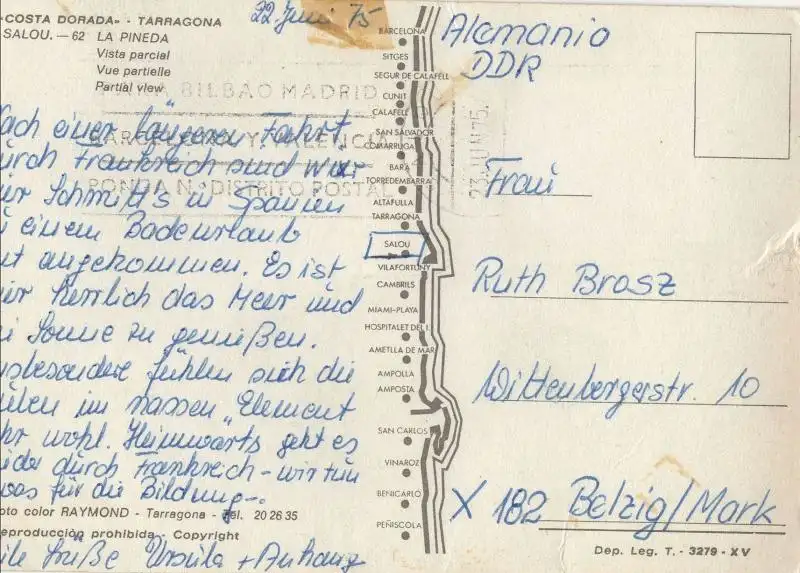 «COSTA DORADA» - TARRAGONA
SALOU. - 62 LA PINEDA
Vista parcial
Vue partielle
Partial view
22. Juni 75
BILBAO MADRID
VALENCIA
RONDA N. DISTRITO POSTAL
23. JUN 75.
ach einer längeren Fahrt
urch Frankreich sind wir
ier Schmitt's in Spanien
u einem Badeurlaub
ut angekommen. Es ist
ier herrlich das Meer und
ie Sonne zu genießen.
nsbesondere fühlen sich die
im nassen "Element"
ehr wohl. Heimwärts geht es
durch Frankreich - wir tun
was für die Bildung -.
oto color RAYMOND - Tarragona - Tel. 20 26 35
eproducción prohibida - Copyright
iele Grüße Ursula + Anhang
BARCELONA
SITGES
SEGUR DE CALAFELL
CUNIT
CALAFELL
SAN SALVADOR
COMARRUGA
BARA
TORREDEMBARRA
ALTAFULLA
TARRAGONA
SALOU
VILAFORTUNY
CAMBRILS
MIAMI-PLAYA
HOSPITALET DEL I.
AMETLLA DE MAR
AMPOLLA
AMPOSTA
SAN CARLOS
VINAROZ
BENICARLO
PEÑISCOLA
Alemania
DDR
Frau
Ruth Brosz
Wittenbergerstr. 10
X 182 Belzig/Mark
Dep. Leg. T. - 3279 - XV